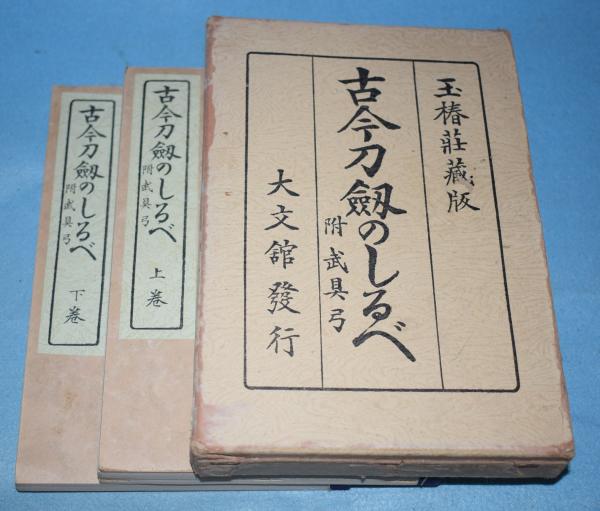 玉椿莊藏版
古今刀劔のしるべ
附武具弓
大文舘發行
古今刀劔のしるべ
附武具弓
上巻
古今刀劔のしるべ
附武具弓
下巻